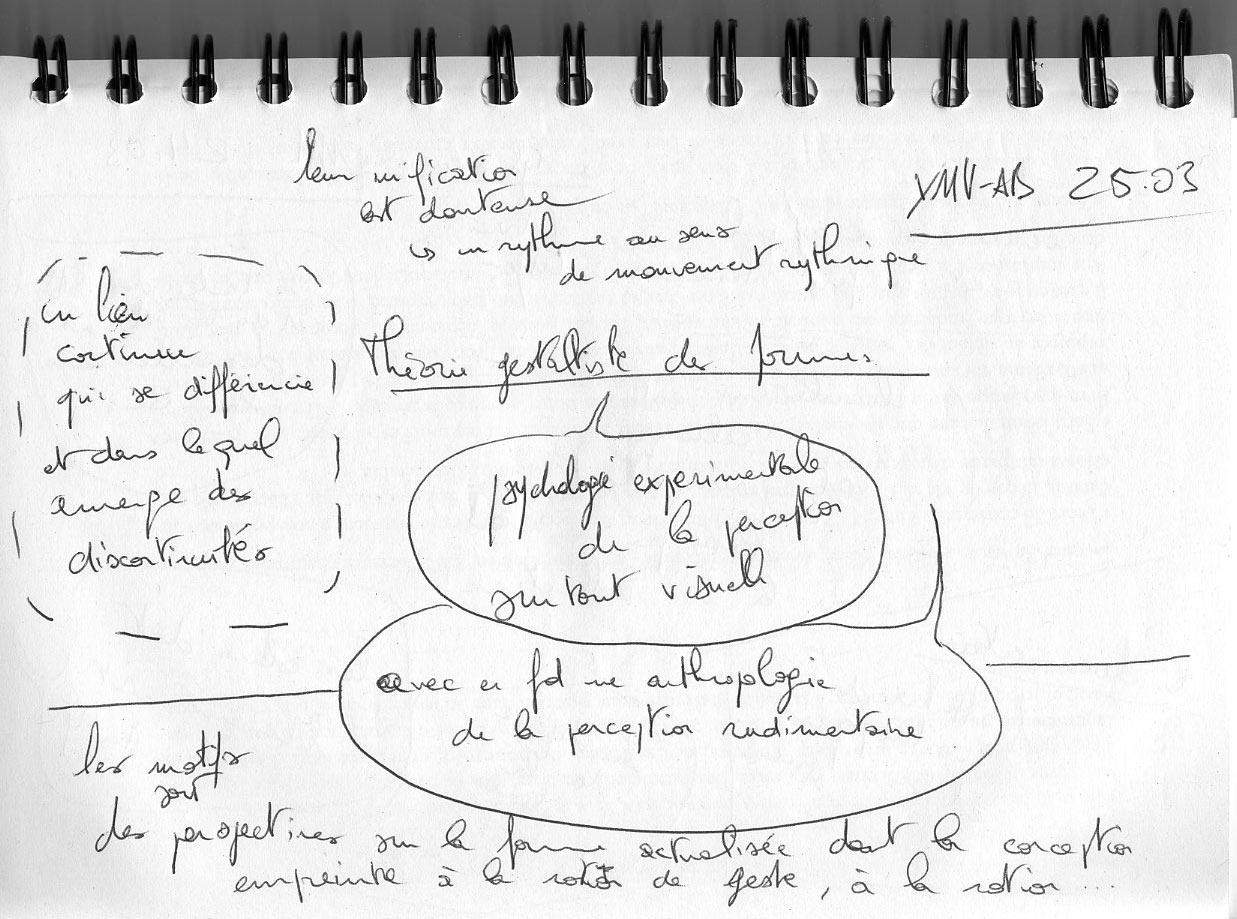 leur unification
est douteuse
↳ un rythme au sens
de mouvement rythmique
XMV-AB 25.03
un lien
continu
qui se différencie
et dans lequel
emerge des
discontinuités
Théorie gestaltiste des formes
psychologie experimentale
de la perception
surtout visuelle
avec en fd une anthropologie
de la perception rudimentaire
les motifs
sont
des perspectives sur la forme actualisée dont la conception
empreinte à la notion de geste, à la notion ...